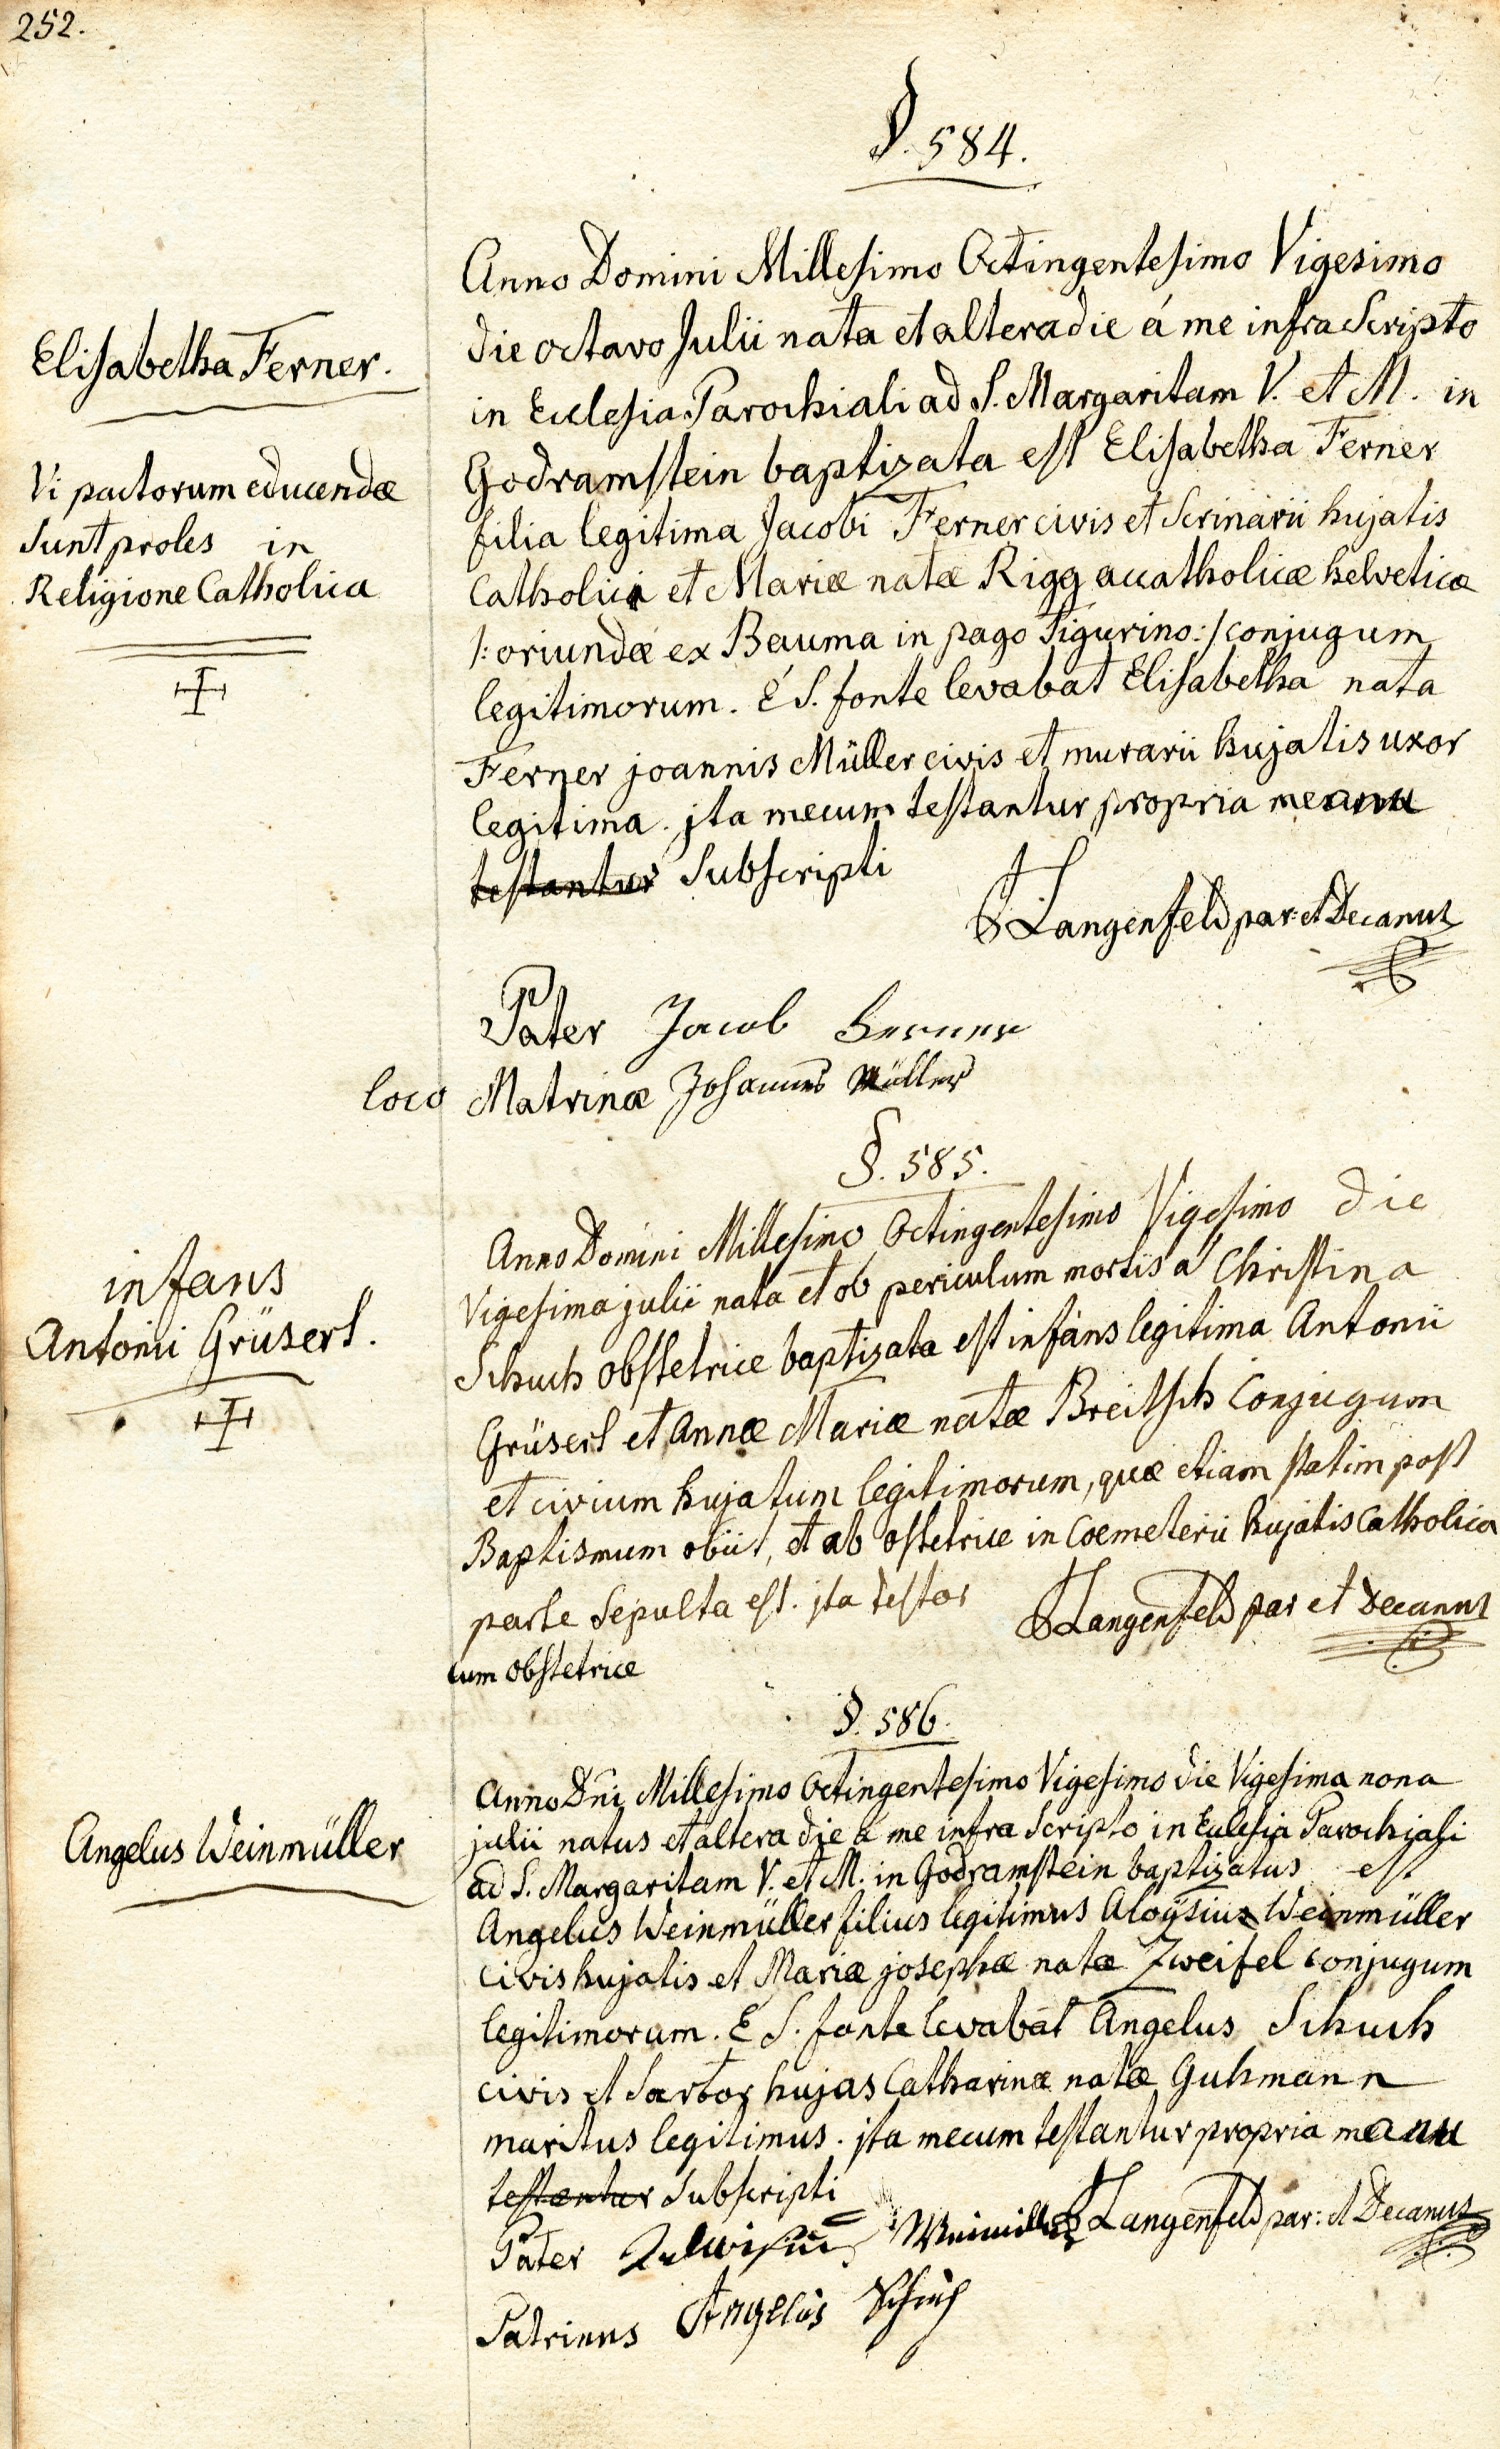 252.
§. 584.
Elisabetha Ferner.
Vi pactorum educendæ
sunt proles in
Religione Catholica
Anno Domini Millesimo Octingentesimo Vigesimo
die octavo Julii nata et altera die á me infra Scripto
in Ecclesia Parochiali ad S. Margaritam V. et M. in
Godramstein baptizata est Elisabetha Ferner
filia legitima Jacobi Ferner civis et Scrinarii hujatis
Catholici et Mariæ natæ Rigg acatholicæ helveticæ
/: oriundæ ex Bauma in pago Tigurino :/ conjugum
legitimorum. É S. fonte levabat Elisabetha nata
Ferner joannis Müller civis et murarii hujatis uxor
legitima. jta mecum testantur propria manu
testantur Subscripti
Langenfeld par: et Decanus
Pater Jacob Ferner
loco Matrinæ Johannes Müller
§. 585.
infans
Antonii Grüsert.
Anno Domini Millesimo Octingentesimo Vigesimo die
Vigesima julii nata et ob periculum mortis á Christina
Schuch obstetrice baptizata est infans legitima Antonii
Grüsert et Annæ Mariæ natæ Breitsch Conjugum
et civium hujatum legitimorum, quæ etiam statim post
Baptismum obiit, et ab ostetrice in Coemeterii hujatis Catholica
parte sepulta est. jta testor
Langenfeld par et Decanus
cum obstetrice
§. 586.
Angelus Weinmüller
Anno Dni Millesimo Octingentesimo Vigesimo die Vigesima nona
julii natus et altera die á me infra Scripto in Eclesia Parochiali
ad S. Margaritam V. et M. in Godramstein baptizatus est
Angelus Weinmüller filius legitimus Aloÿsius Weinmüller
civis hujatis et Mariæ josephæ natæ Zweifel conjugum
legitimorum. É S. fonte levabat Angelus Schuch
civis et Sartor hujas Catharinæ natæ Guhmann
maritus legitimus. jta mecum testantur propria manu
testantur Subscripti
Langenfeld par: et Decanus
Pater
Patrinus Angelus Schuch